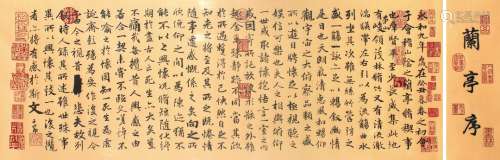 蘭亭序
永和九年歲在癸丑暮春之初會
于會稽山陰之蘭亭脩稧事
也群賢畢至少長咸集此地
有崇山峻領茂林脩竹又有清流激
湍暎帶左右引以為流觴曲水
列坐其次雖無絲竹管弦之
盛一觴一詠亦足以暢敘幽情
是日也天朗氣清惠風和暢仰
觀宇宙之大俯察品類之盛
所以遊目騁懷足以極視聽之
娛信可樂也夫人之相與俯仰
一世或取諸懷抱悟言一室之內
或因寄所託放浪形骸之外雖
趣舍萬殊靜躁不同當其欣
於所遇蹔得於己快然自足不
知老之將至及其所之既惓情
隨事遷感慨係之矣向之所
欣俛仰之閒以為陳迹猶不
能不以之興懷況脩短隨化終
期於盡古人云死生亦大矣豈
不痛哉每攬昔人興感之由
若合一契未嘗不臨文嗟悼不
能喻之於懷固知一死生為虛
誕齊彭殤為妄作後之視今
亦由今之視昔悲夫故列
敘時人錄其所述雖世殊事
異所以興懷其致一也後之攬
者亦將有感於斯文